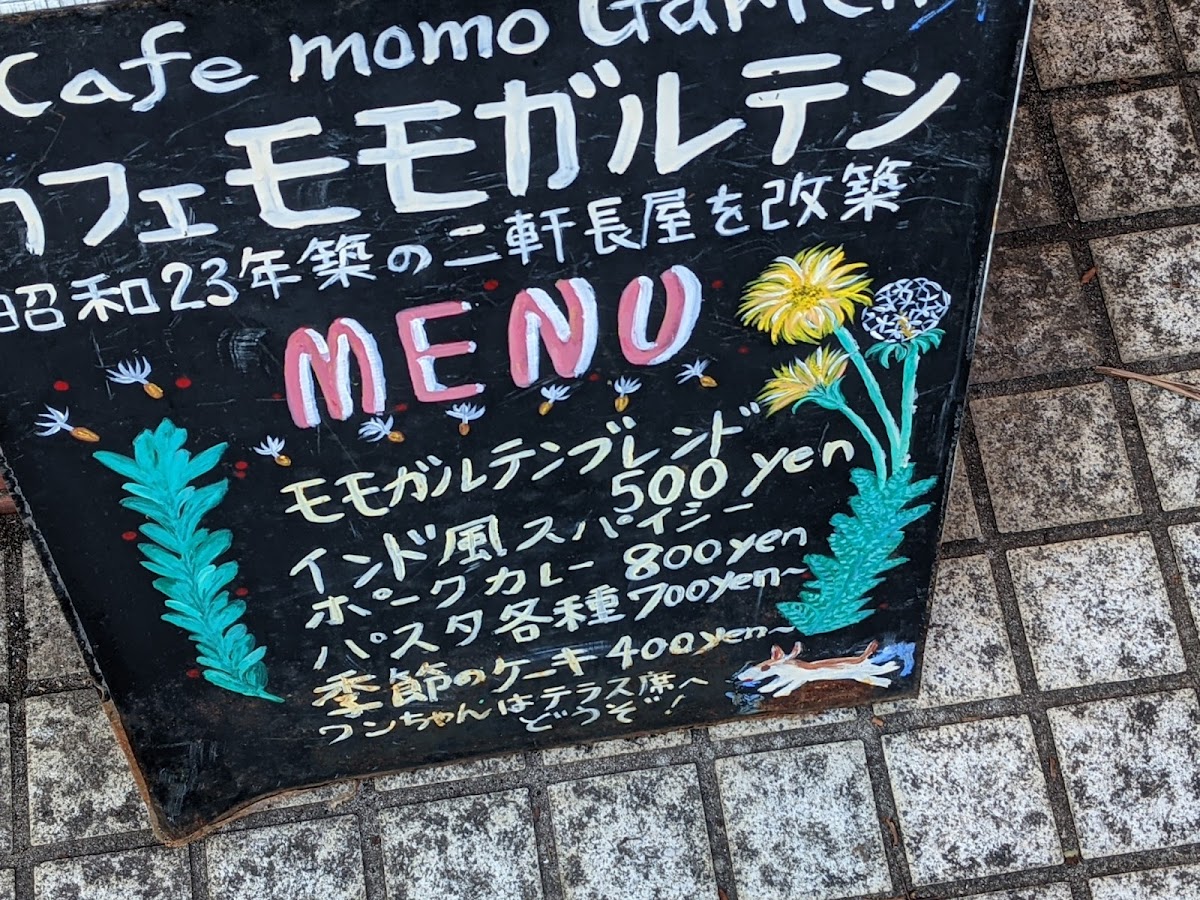 Cafe momo Garten
カフェモモガルテン
昭和23年築の二軒長屋を改築
MENU
モモガルテンブレンド
500 yen
インド風スパイシー
ポークカレー 800yen
パスタ各種 700yen~
季節のケーキ 400yen~
ワンちゃんはテラス席へ
どうぞ!